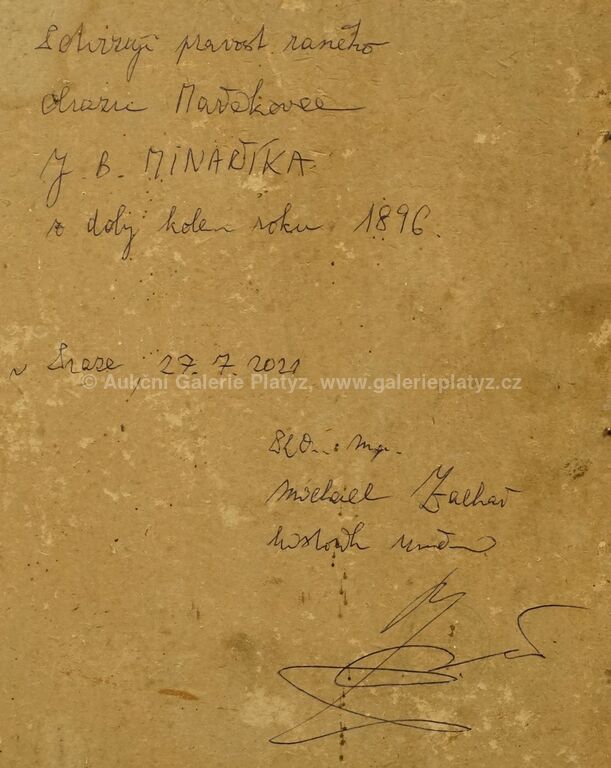 Potvrzuji pravost raného
obrazu Mařákovce
J B. MINAŘÍKA
z doby kolem roku 1896.
v Praze, 27.7.2021
© Aukční Galerie Platyz, www.galerieplatyz.cz
PhDr. Mgr.
Michael Zachař
historik umění